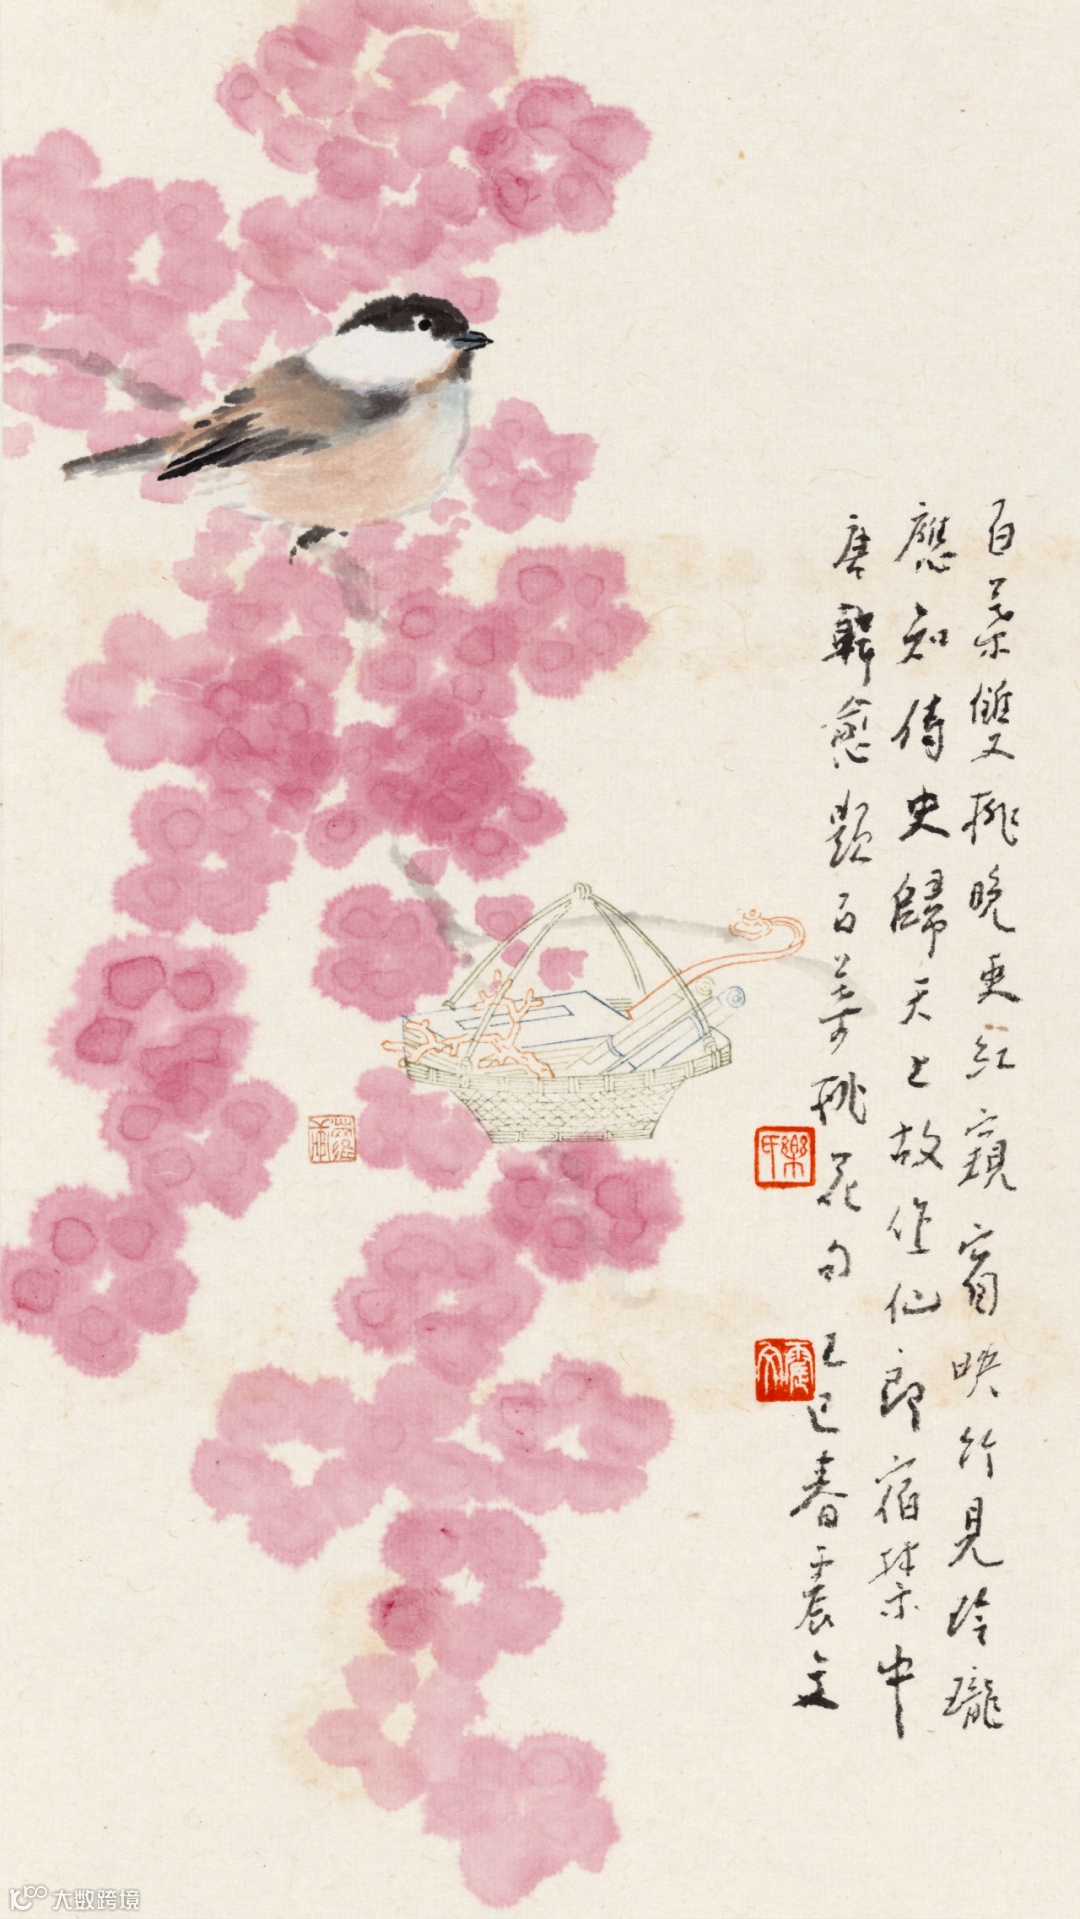 百葉雙桃晚更紅窺窗映竹見玲瓏
應知侍史歸天上故作仙郎宿禁中
唐韓愈題百葉桃花句乙巳春震文
樂氏
震文
大数跨境